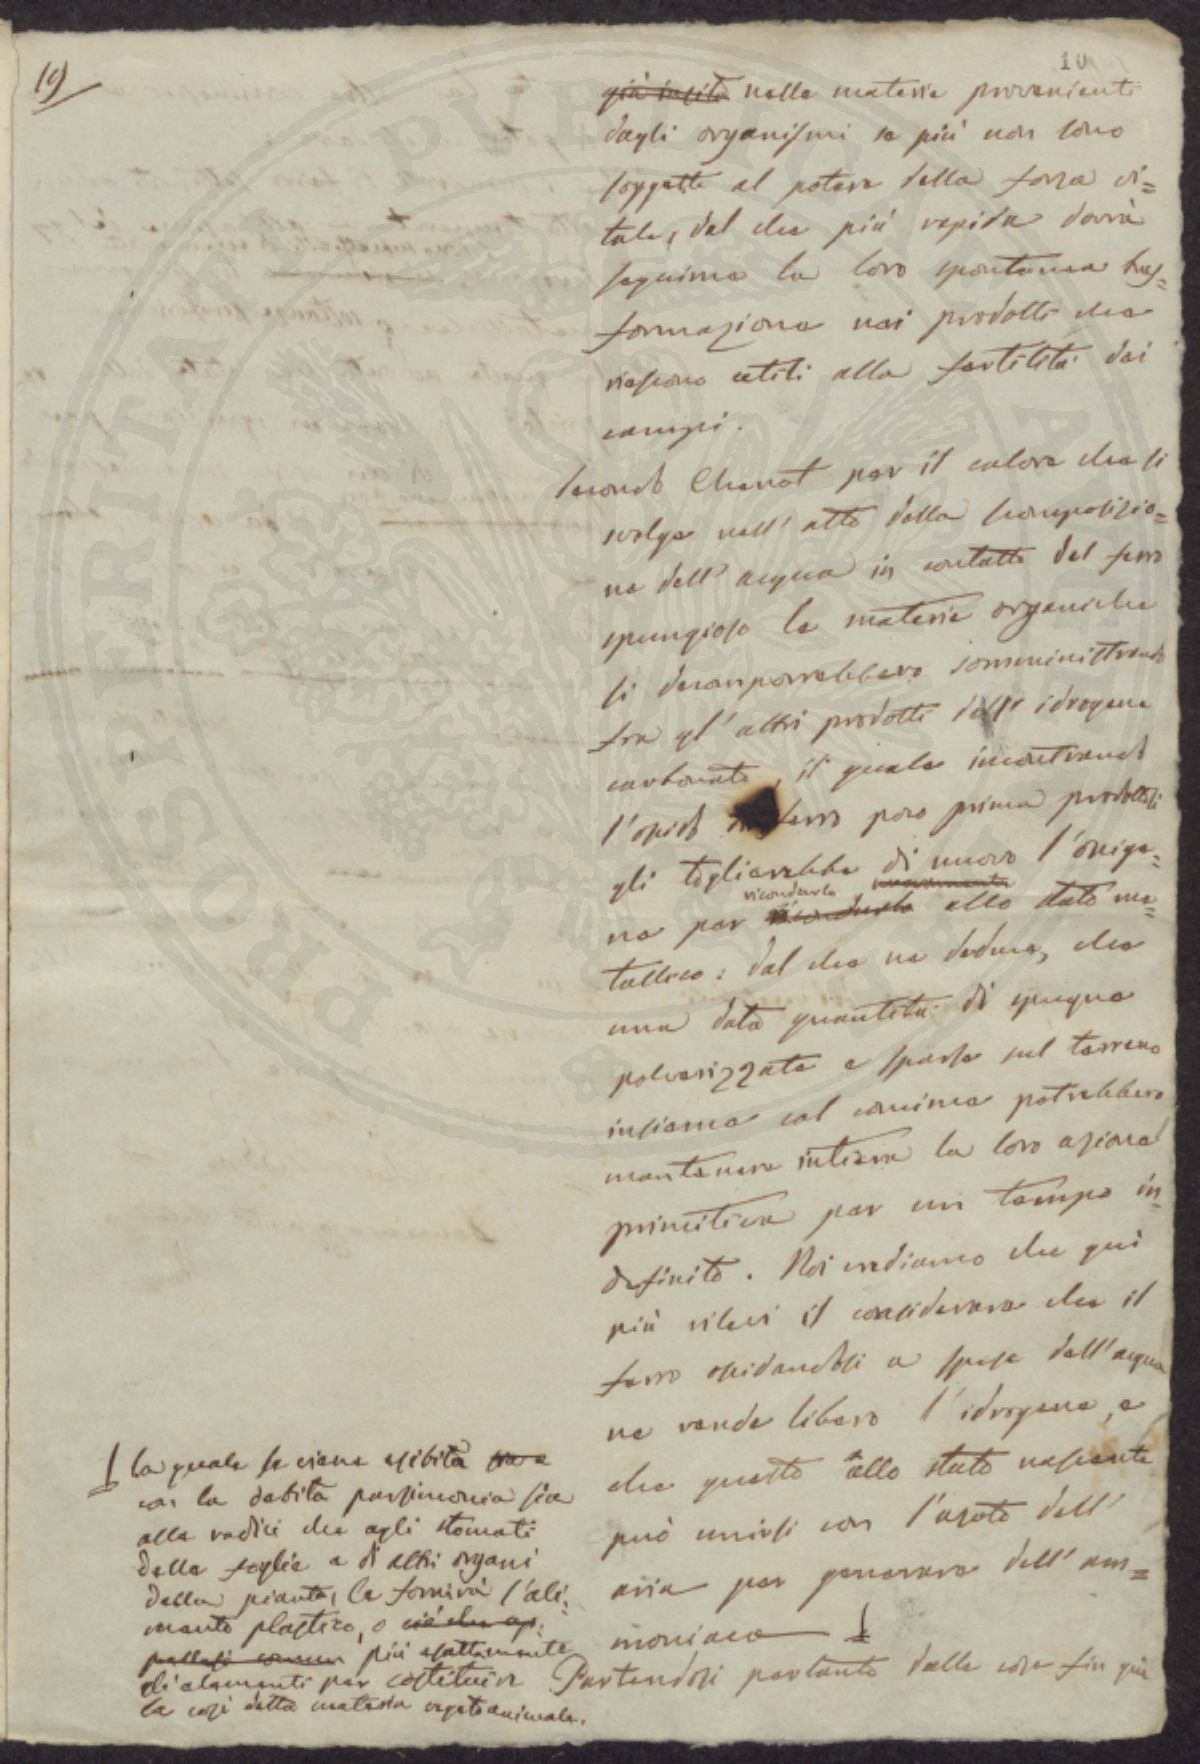 19
10
già insito nelle materie provenienti
dagli organismi se più non sono
soggette al potere della forza vi=
tale, dal che più rapida dovrà
seguirne la loro spontanea tras=
formazione nei prodotti che
riescono utili alla fertilità dei
campi.
Secondo Chenot per il calore che si
svolge nell'atto della scomposizio=
ne dell'acqua in contatto del ferro
spungioso le materie organiche
si decomporrebbero somministrando
fra gl'altri prodotti dell'idrogene
carbonato, il quale incontrando
l'ossido ferro poco prima prodottosi
gli toglierebbe di nuovo l'ossige=
nuovamente
ricondurlo
ne per ricondurlo allo stato me=
tallico: dal che ne deduce, che
una data quantità di spugna
polverizzata e sparsa sul terreno
insieme col concime potrebbero
mantenere intiera la loro azione
primitiva per un tempo in=
definito. Noi crediamo che qui
più rilevi il considerare che il
ferro ossidandosi a spese dell'acqua
ne rende libero l'idrogene, e
che questo allo stato nascente
può unirsi con l'azoto dell'
aria per generare dell'am=
moniaca
Partendosi pertanto dalle cose fin qui
la quale se viene esibita
con la debita parsimonia sia
alle radici che agli stomati
delle foglie e di altri organi
della pianta, le fornirà l'ali=
mento plastico, o cioè che ap=
pellasi più esattamente
gli elementi per costituire
la così detta materia vegetoanimale.
PROSPERITATI PUBLICAE